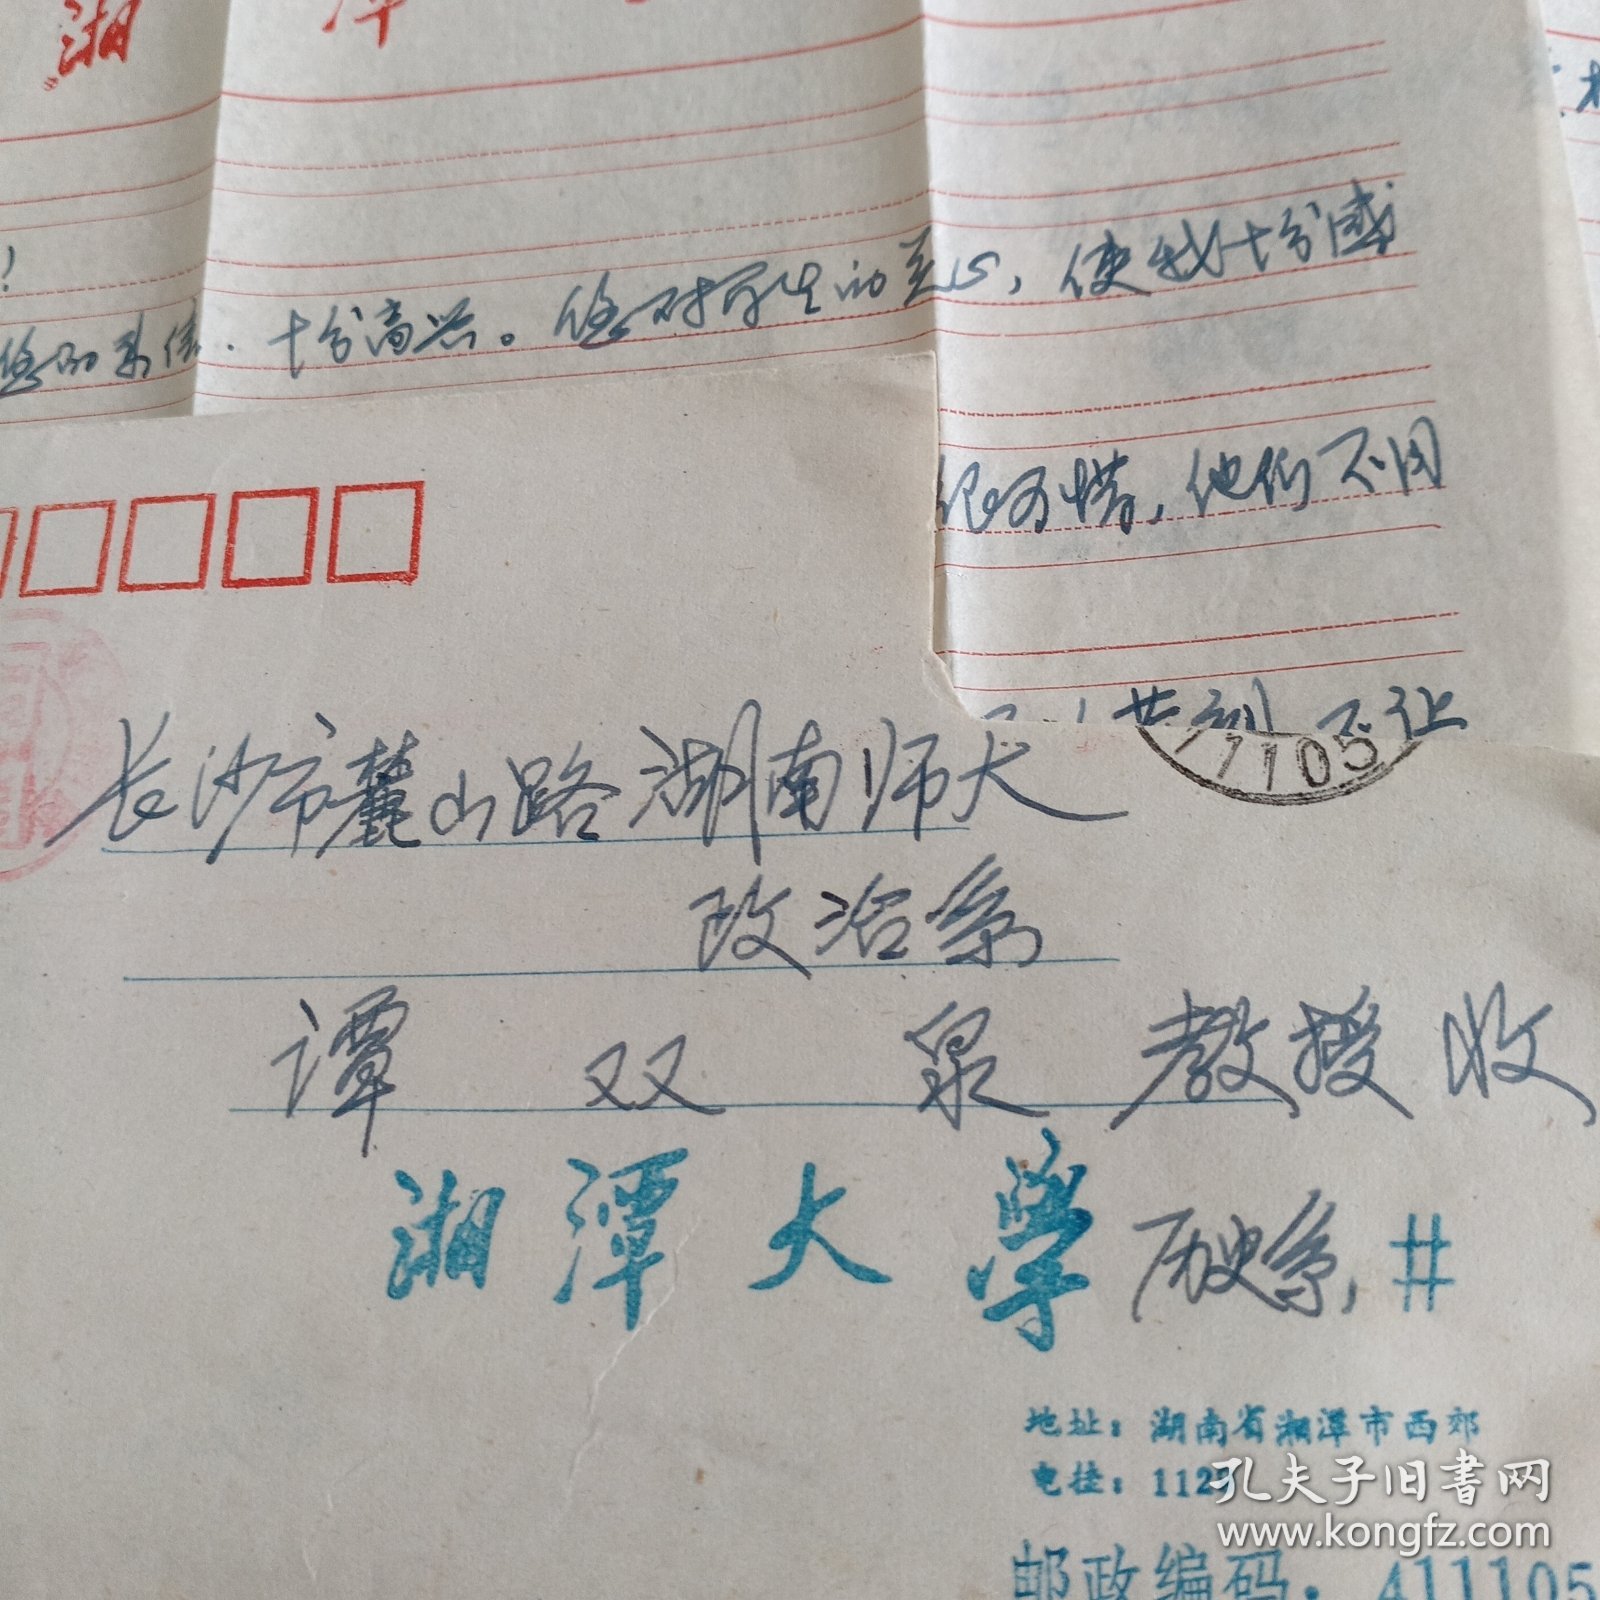 湘 潭
您的来信. 十分高兴。您对学生的关心, 使我十分感
很可惜, 他们不同
不让
11105
长沙市麓山路湖南师大
政治系
谭双泉教授收
湘潭大学历史系, #
地址：湖南省湘潭市西郊
电挂：112
邮政编码：411105
孔夫子旧书网
www.kongfz.com